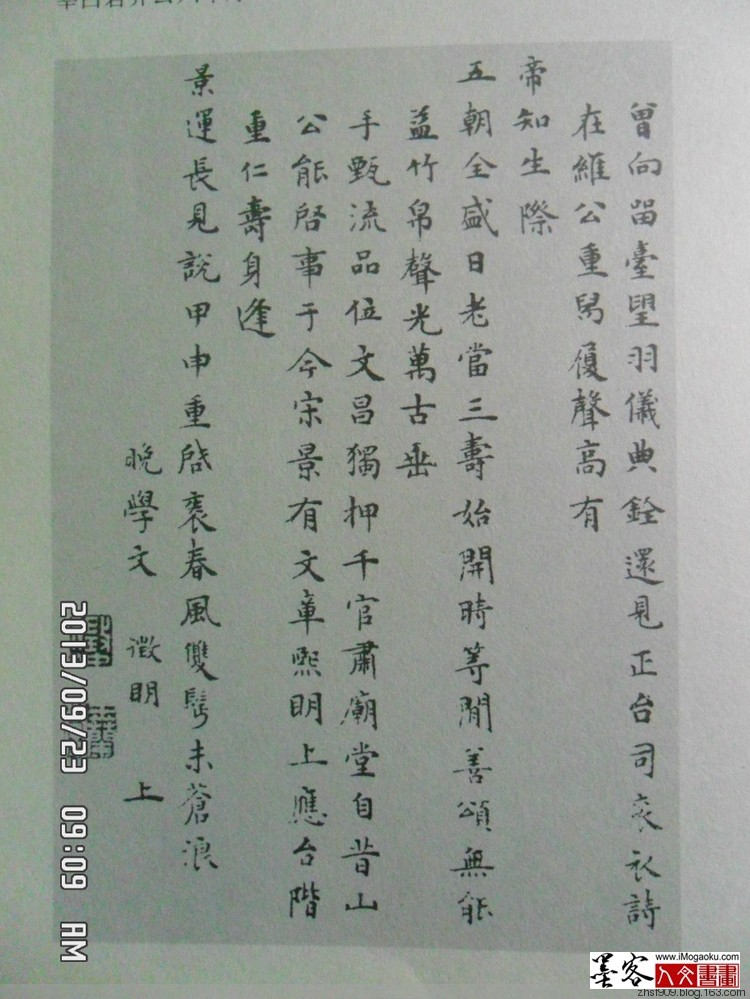 曾向留臺望羽儀典銓還見正台司袞衣詩
在維公重舄履聲高有
帝知生際
五朝全盛日老當三壽始開時等閒善頌無能
益竹帛聲光萬古垂
手甄流品位文昌獨押千官肅廟堂自昔山
公能啓事于今宋景有文章熙明上應台階
重仁壽身逢
景運長見說甲申重啓袠春風雙鬢未蒼浪
晚學文 徵明 上
2013/09/23 09:09 AM
墨客 www.iMogaoku.com
人文書畫
zhsf909.blog.163.com